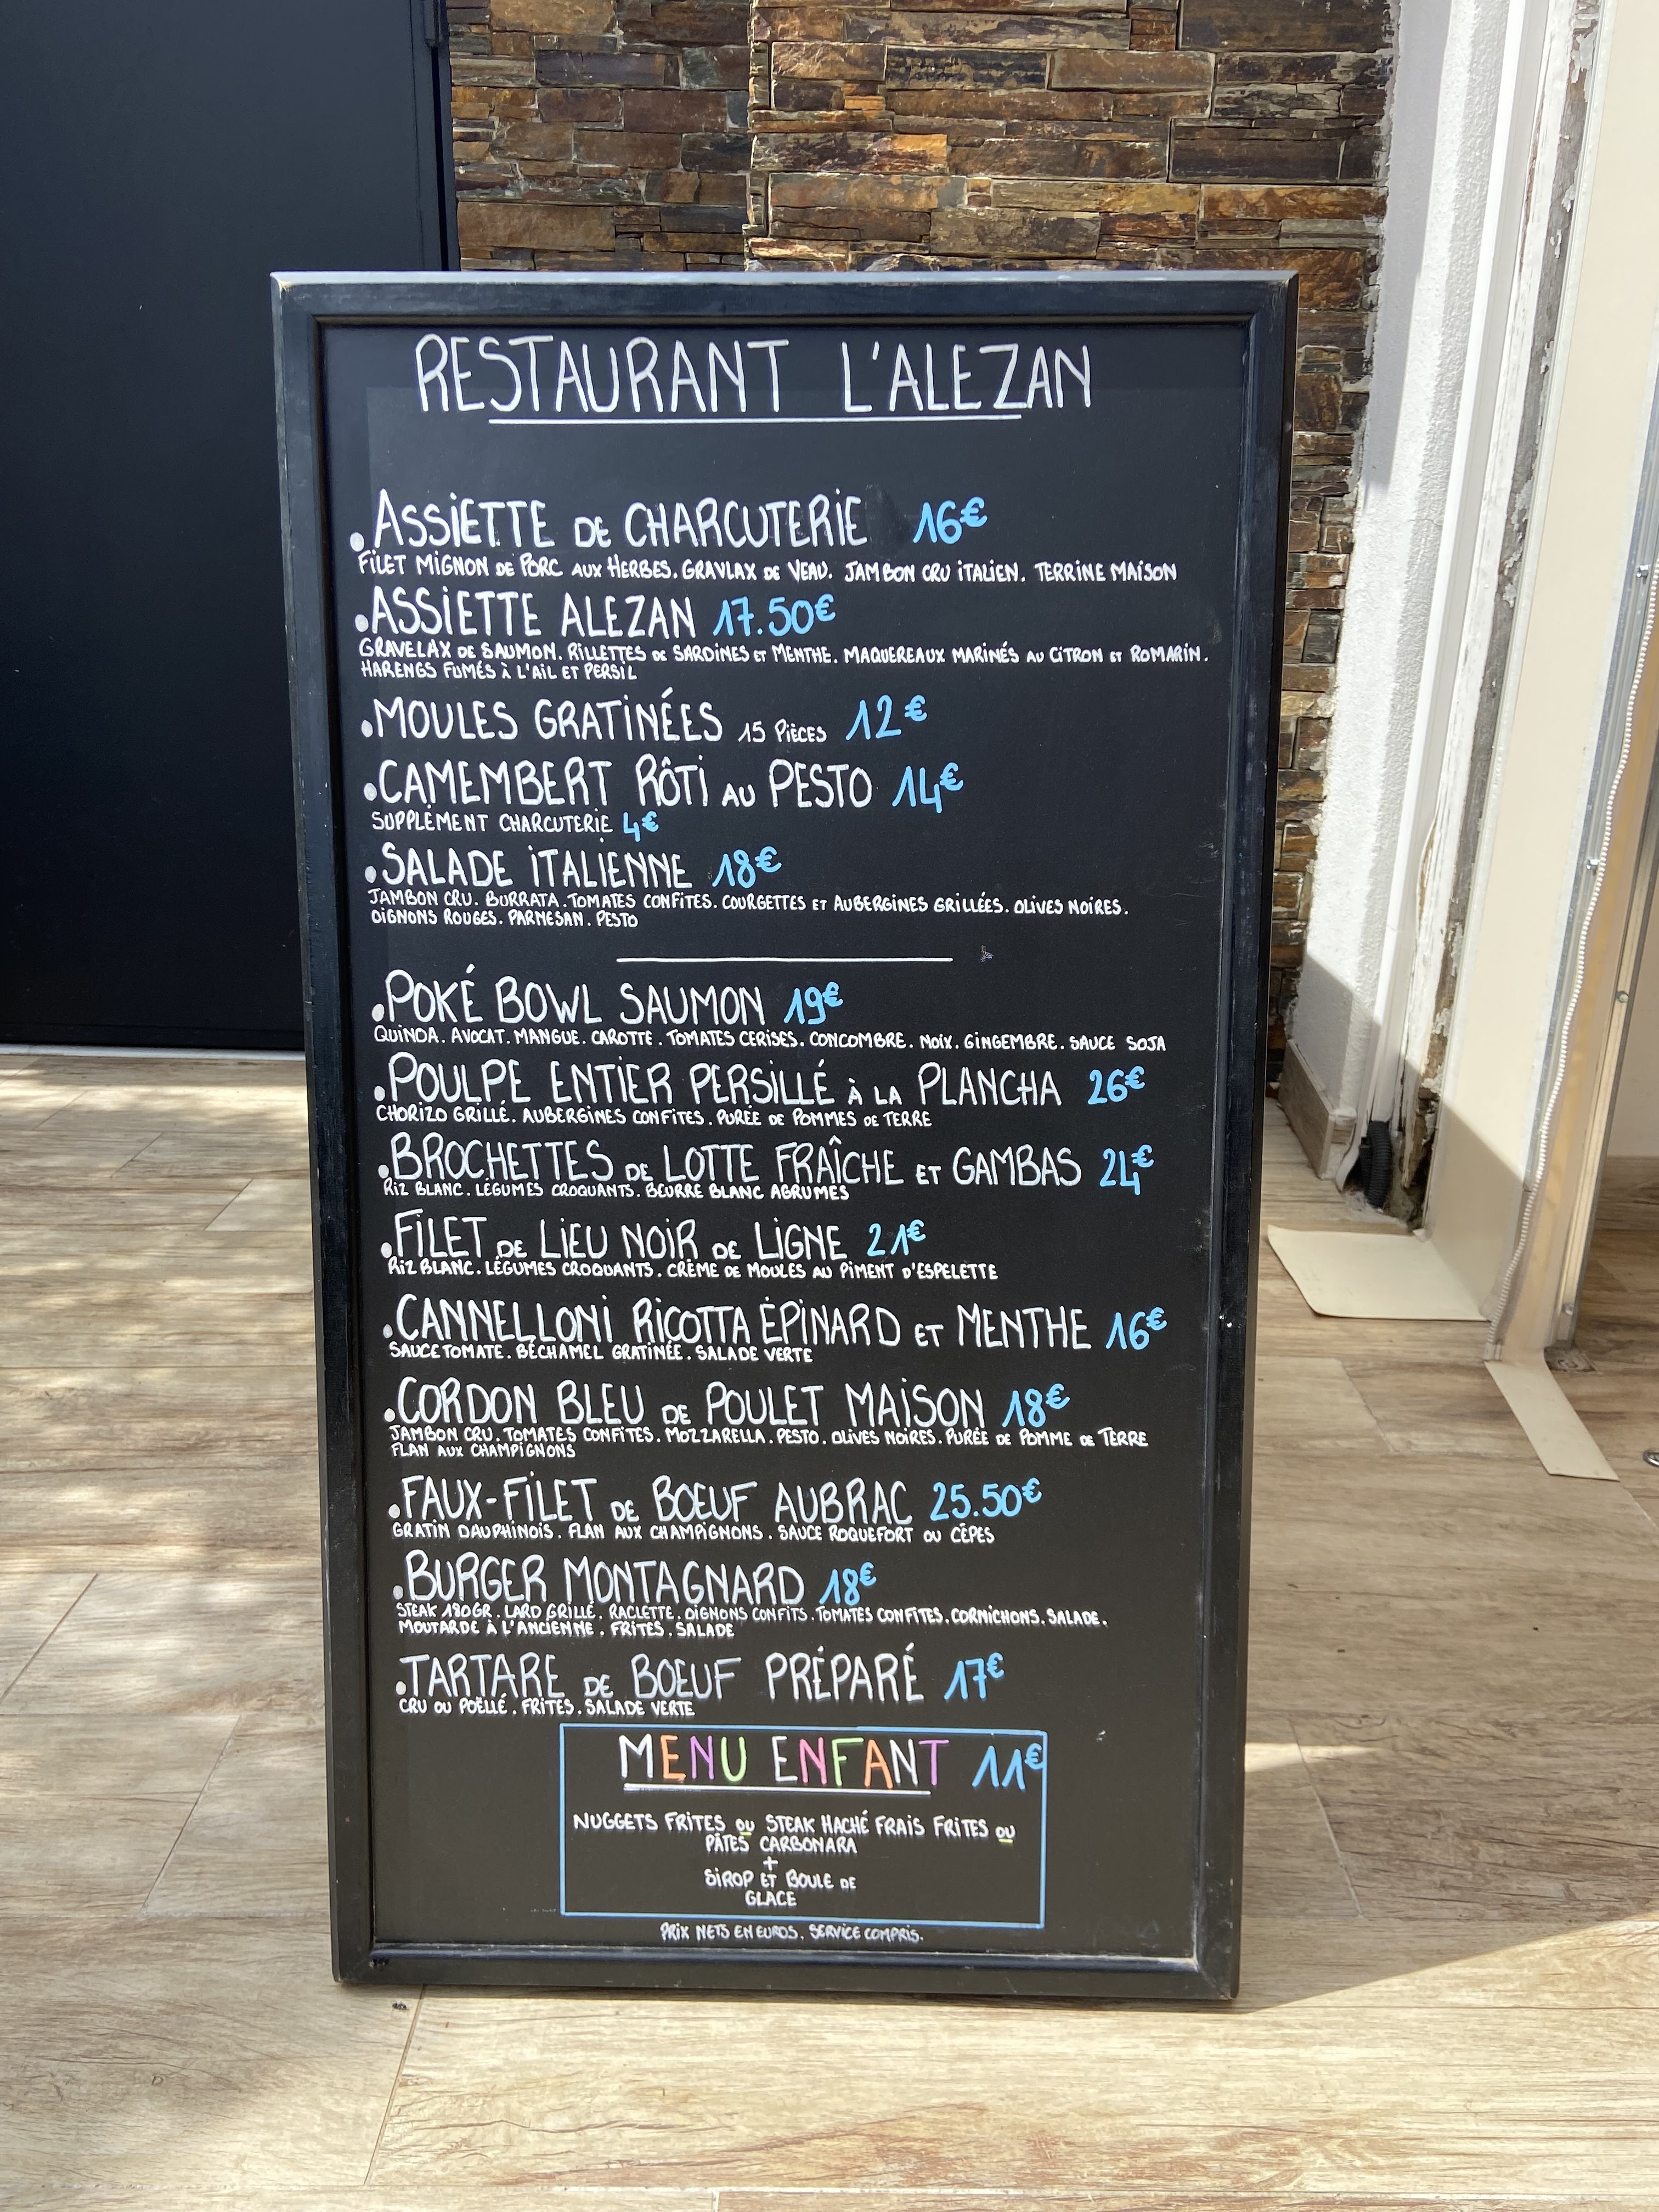 RESTAURANT L'ALEZAN
. ASSIETTE DE CHARCUTERIE 16€
FILET MIGNON DE PORC AUX HERBES. GRAVLAX DE VEAU. JAMBON CRU ITALIEN. TERRINE MAISON
. ASSIETTE ALEZAN 17.50€
GRAVELAX DE SAUMON. RILLETTES DE SARDINES ET MENTHE. MAQUEREAUX MARINÉS AU CITRON ET ROMARIN.
HARENGS FUMÉS À L'AIL ET PERSIL
. MOULES GRATINÉES 15 PIÈCES 12€
. CAMEMBERT RÔTI AU PESTO 14€
SUPPLÉMENT CHARCUTERIE 4€
. SALADE ITALIENNE 18€
JAMBON CRU. BURRATA. TOMATES CONFITES. COURGETTES ET AUBERGINES GRILLÉES. OLIVES NOIRES.
OIGNONS ROUGES. PARMESAN. PESTO
. POKÉ BOWL SAUMON 19€
QUINOA. AVOCAT. MANGUE. CAROTTE. TOMATES CERISES. CONCOMBRE. NOIX. GINGEMBRE. SAUCE SOJA
. POULPE ENTIER PERSILLÉ À LA PLANCHA 26€
CHORIZO GRILLÉ. AUBERGINES CONFITES. PURÉE DE POMMES DE TERRE
. BROCHETTES DE LOTTE FRAÎCHE ET GAMBAS 24€
RIZ BLANC. LÉGUMES CROQUANTS. BEURRE BLANC AGRUMES
. FILET DE LIEU NOIR DE LIGNE 21€
RIZ BLANC. LÉGUMES CROQUANTS. CRÈME DE MOULES AU PIMENT D'ESPELETTE
. CANNELLONI RICOTTA ÉPINARD ET MENTHE 16€
SAUCE TOMATE. BÉCHAMEL GRATINÉE. SALADE VERTE
. CORDON BLEU DE POULET MAISON 18€
JAMBON CRU. TOMATES CONFITES. MOZZARELLA. PESTO. OLIVES NOIRES. PURÉE DE POMME DE TERRE
FLAN AUX CHAMPIGNONS
. FAUX-FILET DE BOEUF AUBRAC 25.50€
GRATIN DAUPHINOIS. FLAN AUX CHAMPIGNONS. SAUCE ROQUEFORT OU CÈPES
. BURGER MONTAGNARD 18€
STEAK 180GR. LARD GRILLÉ. RACLETTE. OIGNONS CONFITS. TOMATES CONFITES. CORNICHONS. SALADE.
MOUTARDE À L'ANCIENNE. FRITES. SALADE
. TARTARE DE BOEUF PRÉPARÉ 17€
CRU OU POËLLÉ. FRITES. SALADE VERTE
MENU ENFANT 11€
NUGGETS FRITES OU STEAK HACHÉ FRAIS FRITES OU
PÂTES CARBONARA
+
SIROP ET BOULE DE
GLACE
PRIX NETS EN EUROS. SERVICE COMPRIS.